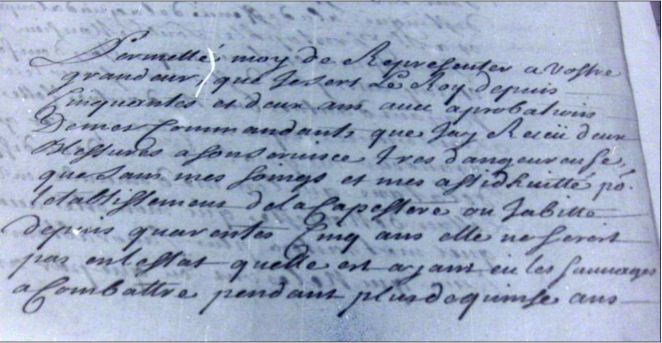 Permetté moy de Representer a vostre
grandeur, que Je sert Le Roy depuis
Cinquantes et deux ans avec aprobations
De mes Commandants que J'ay Receü deux
Blessures a son servisce tres dangereuse,
que sans mes soings et mes assidhuitté po.r
l'etablissement de la Capesterre ou J'abitte
depuis quarentes Cinq ans elle ne seroit
pas en l'estat quelle est ayant eü les sauvages
a Combattre pendant plus de quinse ans